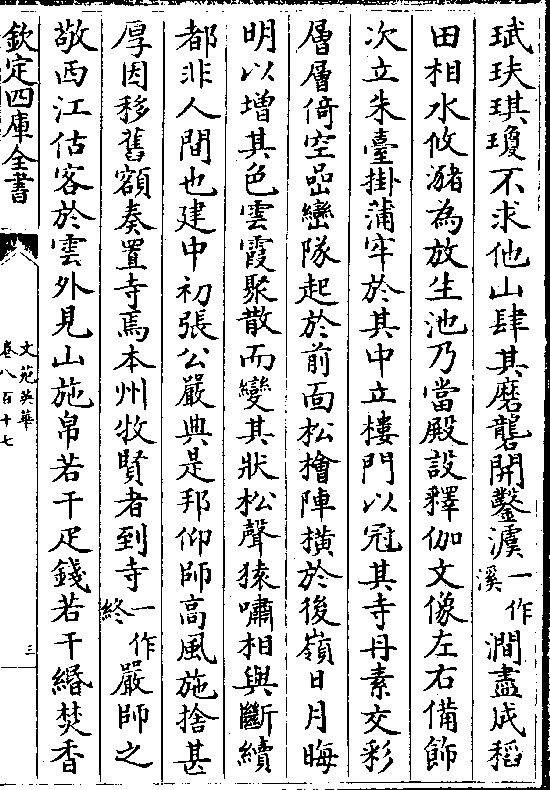 珷玞琪瓊不求他山肆其磨礱開鑿澞一作溪澗盡成稻
田相水攸瀦為放生池乃當殿設釋伽文像左右備飾
次立朱臺掛蒲牢於其中立樓門以冠其寺丹素交彩
層層倚空嵒巒隊起於前面松檜陣橫於後嶺日月晦
明以增其色雲霞聚散而變其狀松聲猿嘯相與斷續
都非人間也建中初張公嚴典是邦仰師高風施捨甚
厚因移舊額奏置寺焉本州牧賢者到寺一作終嚴師之
敬西江估客於雲外見山施帛若干疋錢若干緡焚香
欽定四庫全書
文苑英華
卷八百十七
三